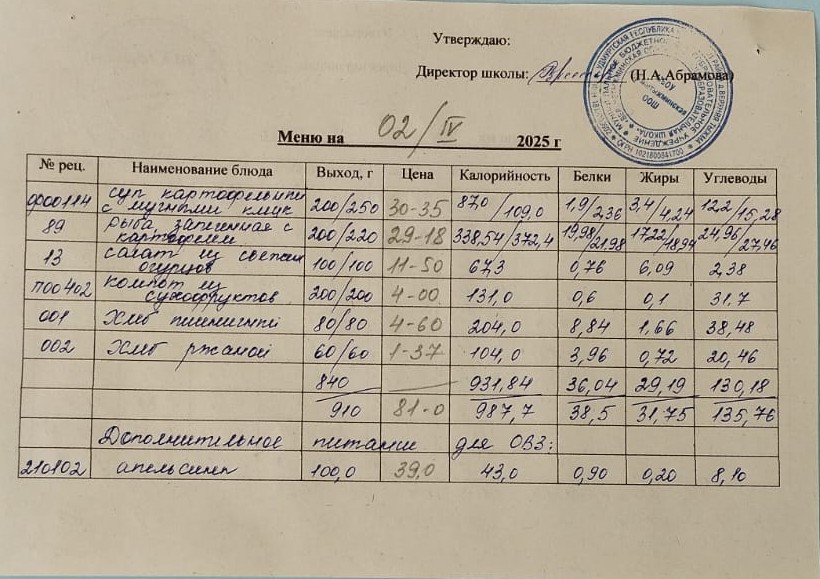 Утверждаю:
Директор школы: (Н.А.Абрамова)
Меню на 02/IV 2025 г
№ рец. Наименование блюда Выход, г Цена Калорийность Белки Жиры Углеводы
ф00114 суп картофельный 200/250 30-35 87,0/109,0 1,9/2,36 3,4/4,24 12,2/15,28
с мучными клёцк
89 рыба запеченная с 200/220 29-18 338,54/372,4 19,98/21,98 17,22/18,94 24,96/27,46
картофелем
13 салат из свежих 100/100 11-50 67,3 0,76 6,09 2,38
огурцов
п00402 компот из 200/200 4-00 131,0 0,6 0,1 31,7
сухофруктов
001 Хлеб пшеничный 80/80 4-60 204,0 8,84 1,66 38,48
002 Хлеб ржаной 60/60 1-37 104,0 3,96 0,72 20,46
840 931,84 36,04 29,19 130,18
910 81-0 987,7 38,5 31,75 135,76
Дополнительное питание для ОВЗ:
210102 апельсин 100,0 39,0 43,0 0,90 0,20 8,10